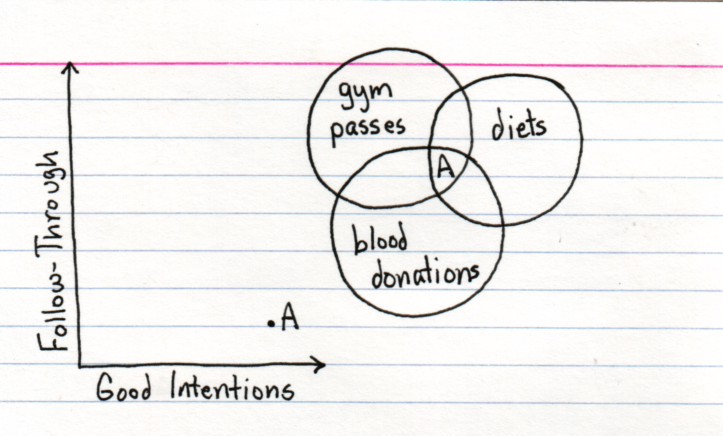 Follow-Through
Good Intentions
.A
gym
passes
diets
A
blood
donations